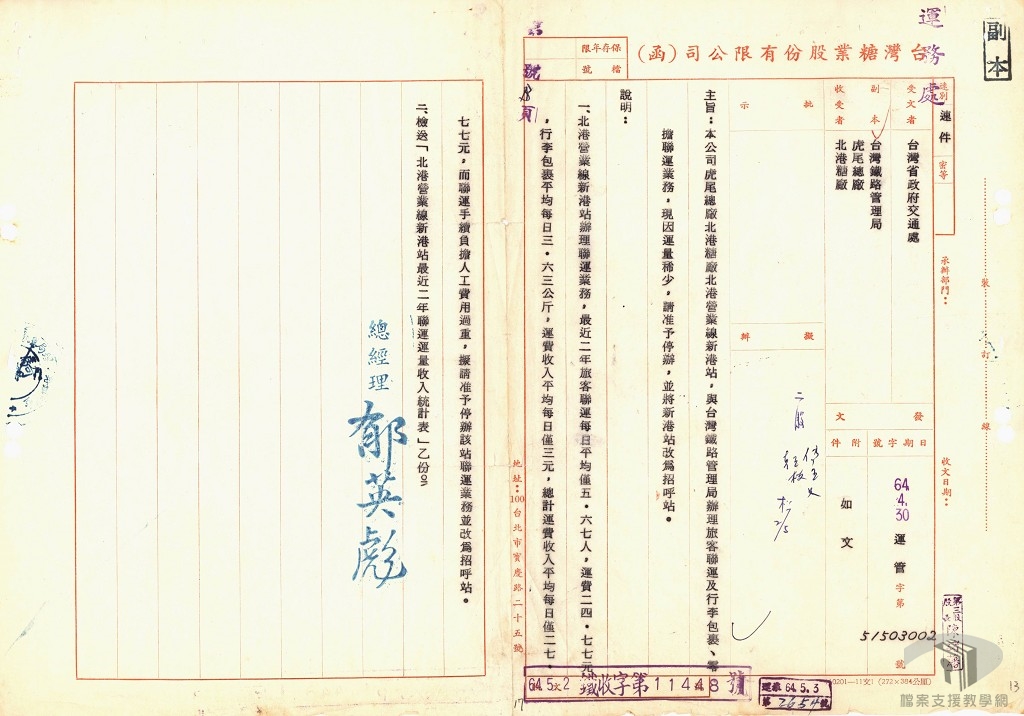 副本
運務處
台灣糖業股份有限公司(函)
保存年限
檔號
速別
速件
密等
受文者
台灣省政府交通處
副本收受者
台灣鐵路管理局
虎尾總廠
北港糖廠
批示
擬辦
發文
日期字號
附件
64.4.30
運管字第
51503002
號
如文
承辦部門：
收文日期：
裝
訂
線
主旨：本公司虎尾總廠北港糖廠北港營業線新港站，與台灣鐵路管理局辦理旅客聯運及行李包裹、零
擔聯運業務，現因運量稀少，請准予停辦，並將新港站改為招呼站。
說明：
一、北港營業線新港站辦理聯運業務，最近二年旅客聯運每日平均僅五・六七人，運費二四・七七元
，行李包裹平均每日三・六三公斤，運費收入平均每日僅三元，總計運費收入平均每日僅二七・
七七元，而聯運手續負擔人工費用過重，擬請准予停辦該站聯運業務並改為招呼站。
二、檢送「北港營業線新港站最近二年聯運運量收入統計表」乙份。
總經理
郁英彪
地址：100台北市寶慶路二十五號
64.5.2
鐵收字第11448號
運綜 64.5.3
第2654號
0201—11交1 (272×384公厘)
13
檔案支援教學網